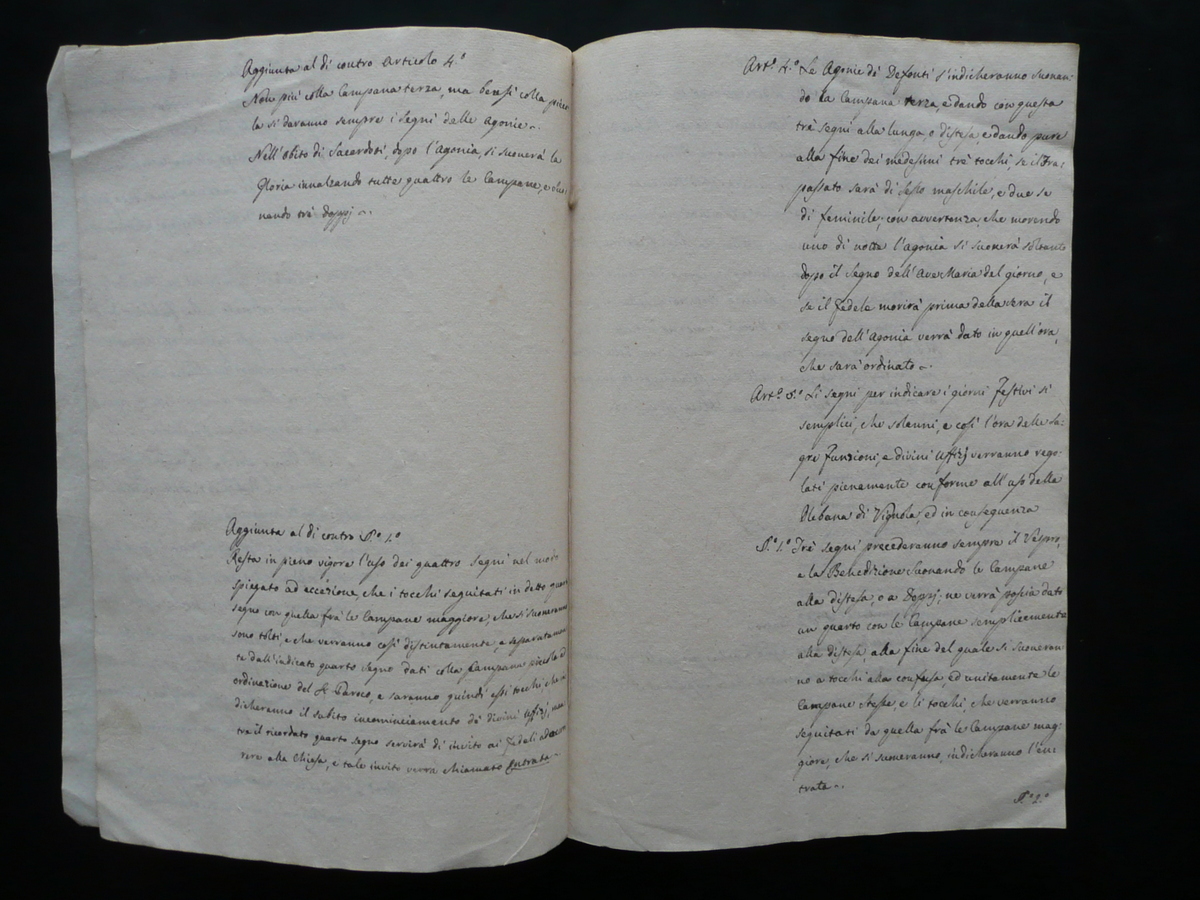 Aggiunta al di contro Articolo 4.°
Non più colla Campana terza, ma bensì colla picco
la si daranno sempre i segni delle Agonie ~.
Nell'obito di Sacerdoti, dopo l'Agonia, si suonerà la
Gloria innalzando tutte quattro le Campane, e
nando trè doppj ~.
Aggiunta al di contro P.° 1.°
Resta in pieno vigore l'uso dei quattro segni nel modo
spiegato ad eccezione, che i tocchi seguitati in detto quarto
segno con quella frà le Campane maggiore, che si suoneranno
sono tolti, e che verranno così distintamente, e separatamen
te dall'indicato quarto segno dati colla Campana piccola d'
ordinazione del S.r Paroco, e saranno quindi essi tocchi, che in
dicheranno il subito incominciamento dè divini Uffizj, men
tre il ricordato quarto segno servirà di invito ai Fedeli ad accor
rere alla Chiesa, e tale invito verrà chiamato Entrata ~
Art.° 4.° Le Agonie dè Defonti s'indicheranno suonan-
do la Campana terza, e dando con questa
trè segni alla lunga, o distesa, e dando pure
alla fine dei medesimi trè tocchi, se il Tra-
passato sarà di sesso maschile, e due se
di feminile; con avvertenza, che morendo
uno di notte l'agonia si suonerà soltanto
dopo il segno dell'Ave Maria del giorno, e
se il fedele morirà prima della sera il
segno dell'Agonia verrà dato in quell'ora,
che sarà ordinato ~.
Art.° 5.° Li segni per indicare i giorni festivi sì
semplici, che solenni, e così l'ora delle sa-
gre funzioni, e divini Uffizj verranno rego-
lati pienamente conforme all'uso della
Plebana di Vignola, ed in conseguenza
P.° 1.° Trè segni precederanno sempre il Vespro,
e la Benedizione suonando le Campane
alla distesa, o a Doppj; ne verrà poscia dato
un quarto con le Campane semplicemente
alla distesa, alla fine del quale si suoneran
no a tocchi alla confusa, ed unitamente le
Campane stesse, e li tocchi, che verranno
seguitati da quella frà le Campane mag-
giore, che si suoneranno, indicheranno l'en-
trata ~.
P.° 2.°